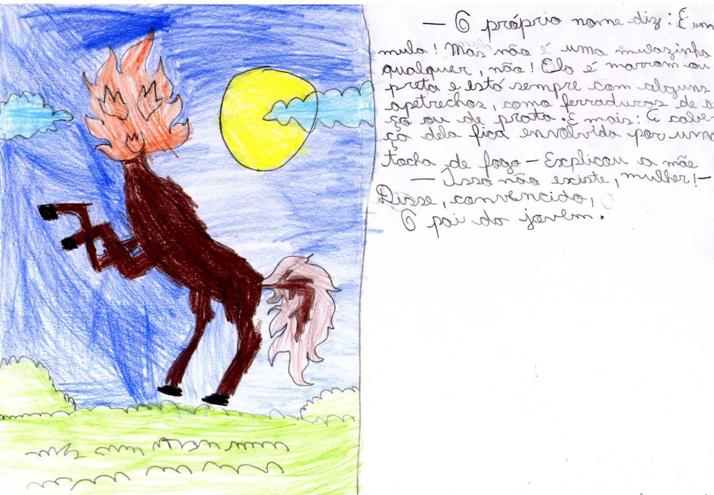 — O próprio nome diz: É um
mula! Mas não é uma mulazinha
qualquer, não! Ela é marrom ou
preta e está sempre com alguns
apetrechos, como ferraduras de a
ço ou de prata. E mais: A cabe-
ça dela fica envolvida por uma
tocha de fogo — Explicou a mãe
— Isso não existe, mulher! —
Disse, convencido,
O pai do jovem.